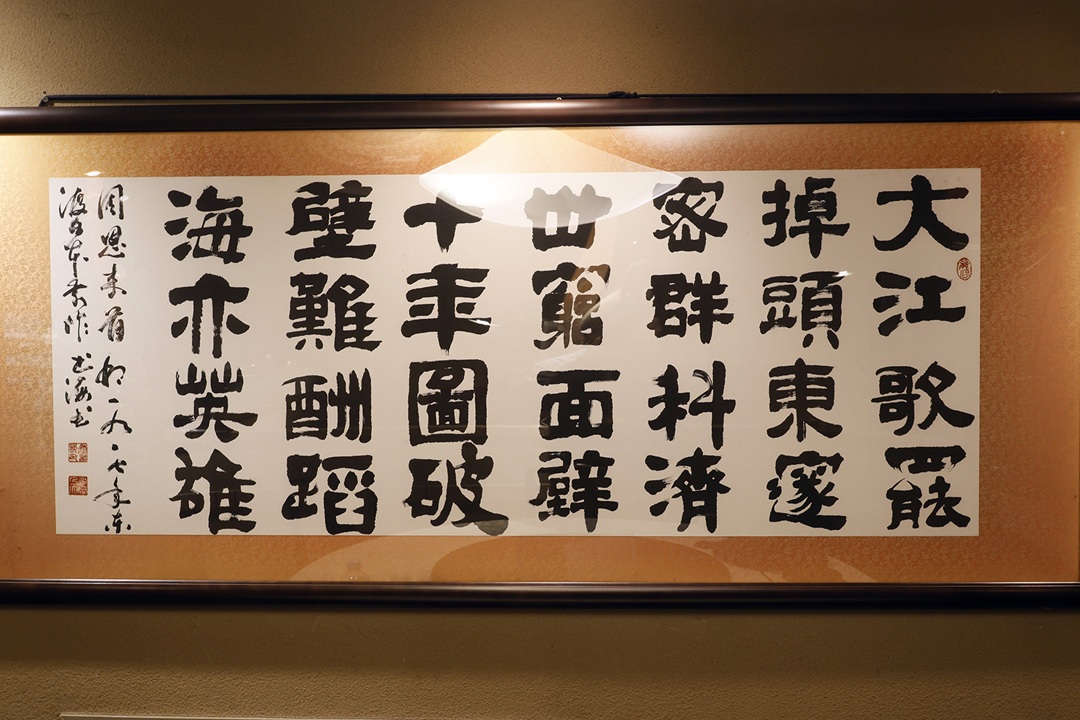 大江歌罷
掉頭東邃
密群科濟
世窮面壁
十年圖破
壁難酬蹈
海亦英雄
周恩来首相一九一七年东
渡日本前作